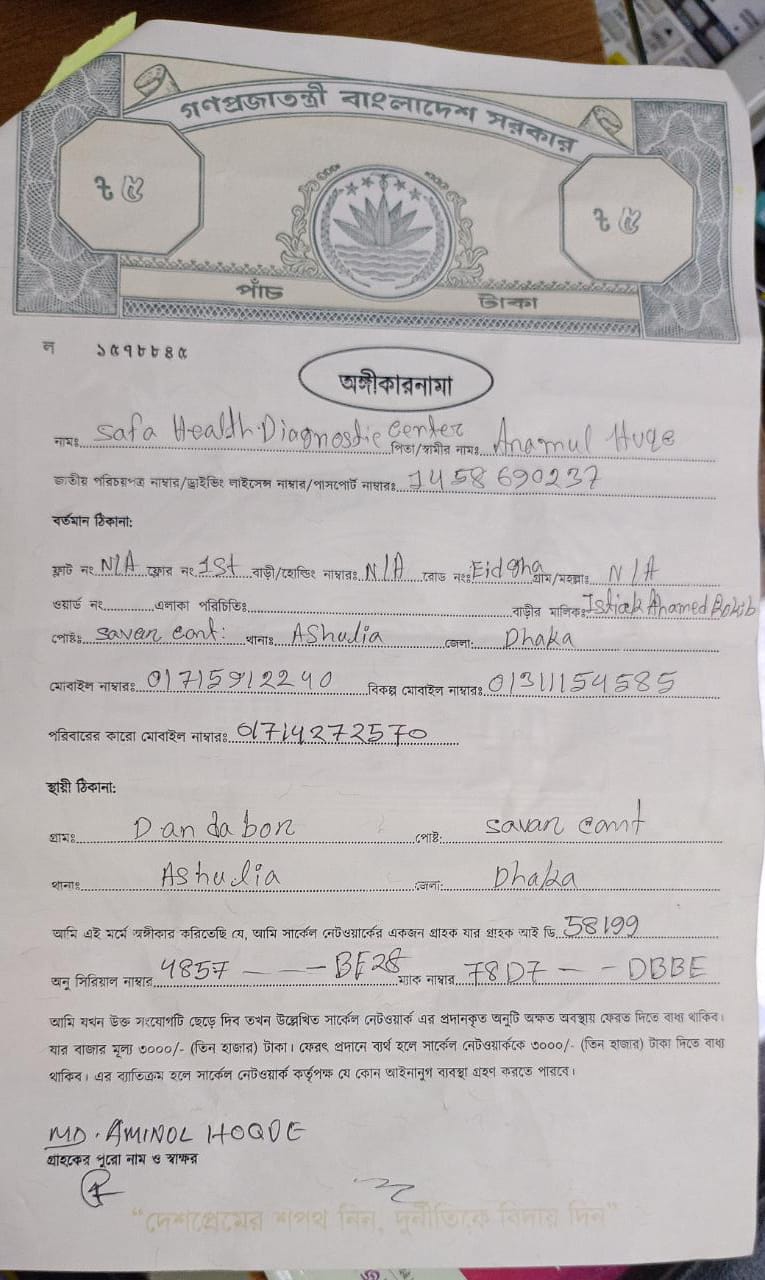 গণপ্রজাতন্ত্রী বাংলাদেশ সরকার
৳ ৫ ৳ ৫
পাঁচ টাকা
ন ১৫৭৮৮৪৫
অঙ্গীকারনামা
নামঃ Safa Health Diagnostic Center পিতা/স্বামীর নামঃ Anamul Huqe
জাতীয় পরিচয়পত্র নাম্বার/ড্রাইভিং লাইসেন্স নাম্বার/পাসপোর্ট নাম্বারঃ 1458690237
বর্তমান ঠিকানা:
ফ্লাট নং N/A ফ্লোর নং 1st বাড়ী/হোল্ডিং নাম্বারঃ N/A রোড নংঃ Eidgha গ্রাম/মহল্লাঃ N/A
ওয়ার্ড নং এলাকা পরিচিতিঃ বাড়ীর মালিকঃ Istiak Ahamed Rokib
পোষ্টঃ Savar Cant: থানাঃ AShulia জেলা: Dhaka
মোবাইল নাম্বারঃ 01715912240 বিকল্প মোবাইল নাম্বারঃ 01311154585
পরিবারের কারো মোবাইল নাম্বারঃ 01714272570
স্থায়ী ঠিকানা:
গ্রামঃ Dandabor পোষ্ট: savar cant
থানাঃ AShulia জেলা: Dhaka
আমি এই মর্মে অঙ্গীকার করিতেছি যে, আমি সার্কেল নেটওয়ার্কের একজন গ্রাহক যার গ্রাহক আই ডি 58199
অনু সিরিয়াল নাম্বার 4857 - - - BE28 ম্যাক নাম্বার 78D7 - - DBBE
আমি যখন উক্ত সংযোগটি ছেড়ে দিব তখন উল্লেখিত সার্কেল নেটওয়ার্ক এর প্রদানকৃত অনুটি অক্ষত অবস্থায় ফেরত দিতে বাধ্য থাকিব।
যার বাজার মূল্য ৩০০০/- (তিন হাজার) টাকা। ফেরৎ প্রদানে ব্যর্থ হলে সার্কেল নেটওয়ার্ককে ৩০০০/- (তিন হাজার) টাকা দিতে বাধ্য
থাকিব। এর ব্যতিক্রম হলে সার্কেল নেটওয়ার্ক কর্তৃপক্ষ যে কোন আইনানুগ ব্যবস্থা গ্রহণ করতে পারবে।
MD. AMINOL HOQUE
গ্রাহকের পুরো নাম ও স্বাক্ষর
“দেশপ্রেমের শপথ নিন, দুর্নীতিকে বিদায় দিন”